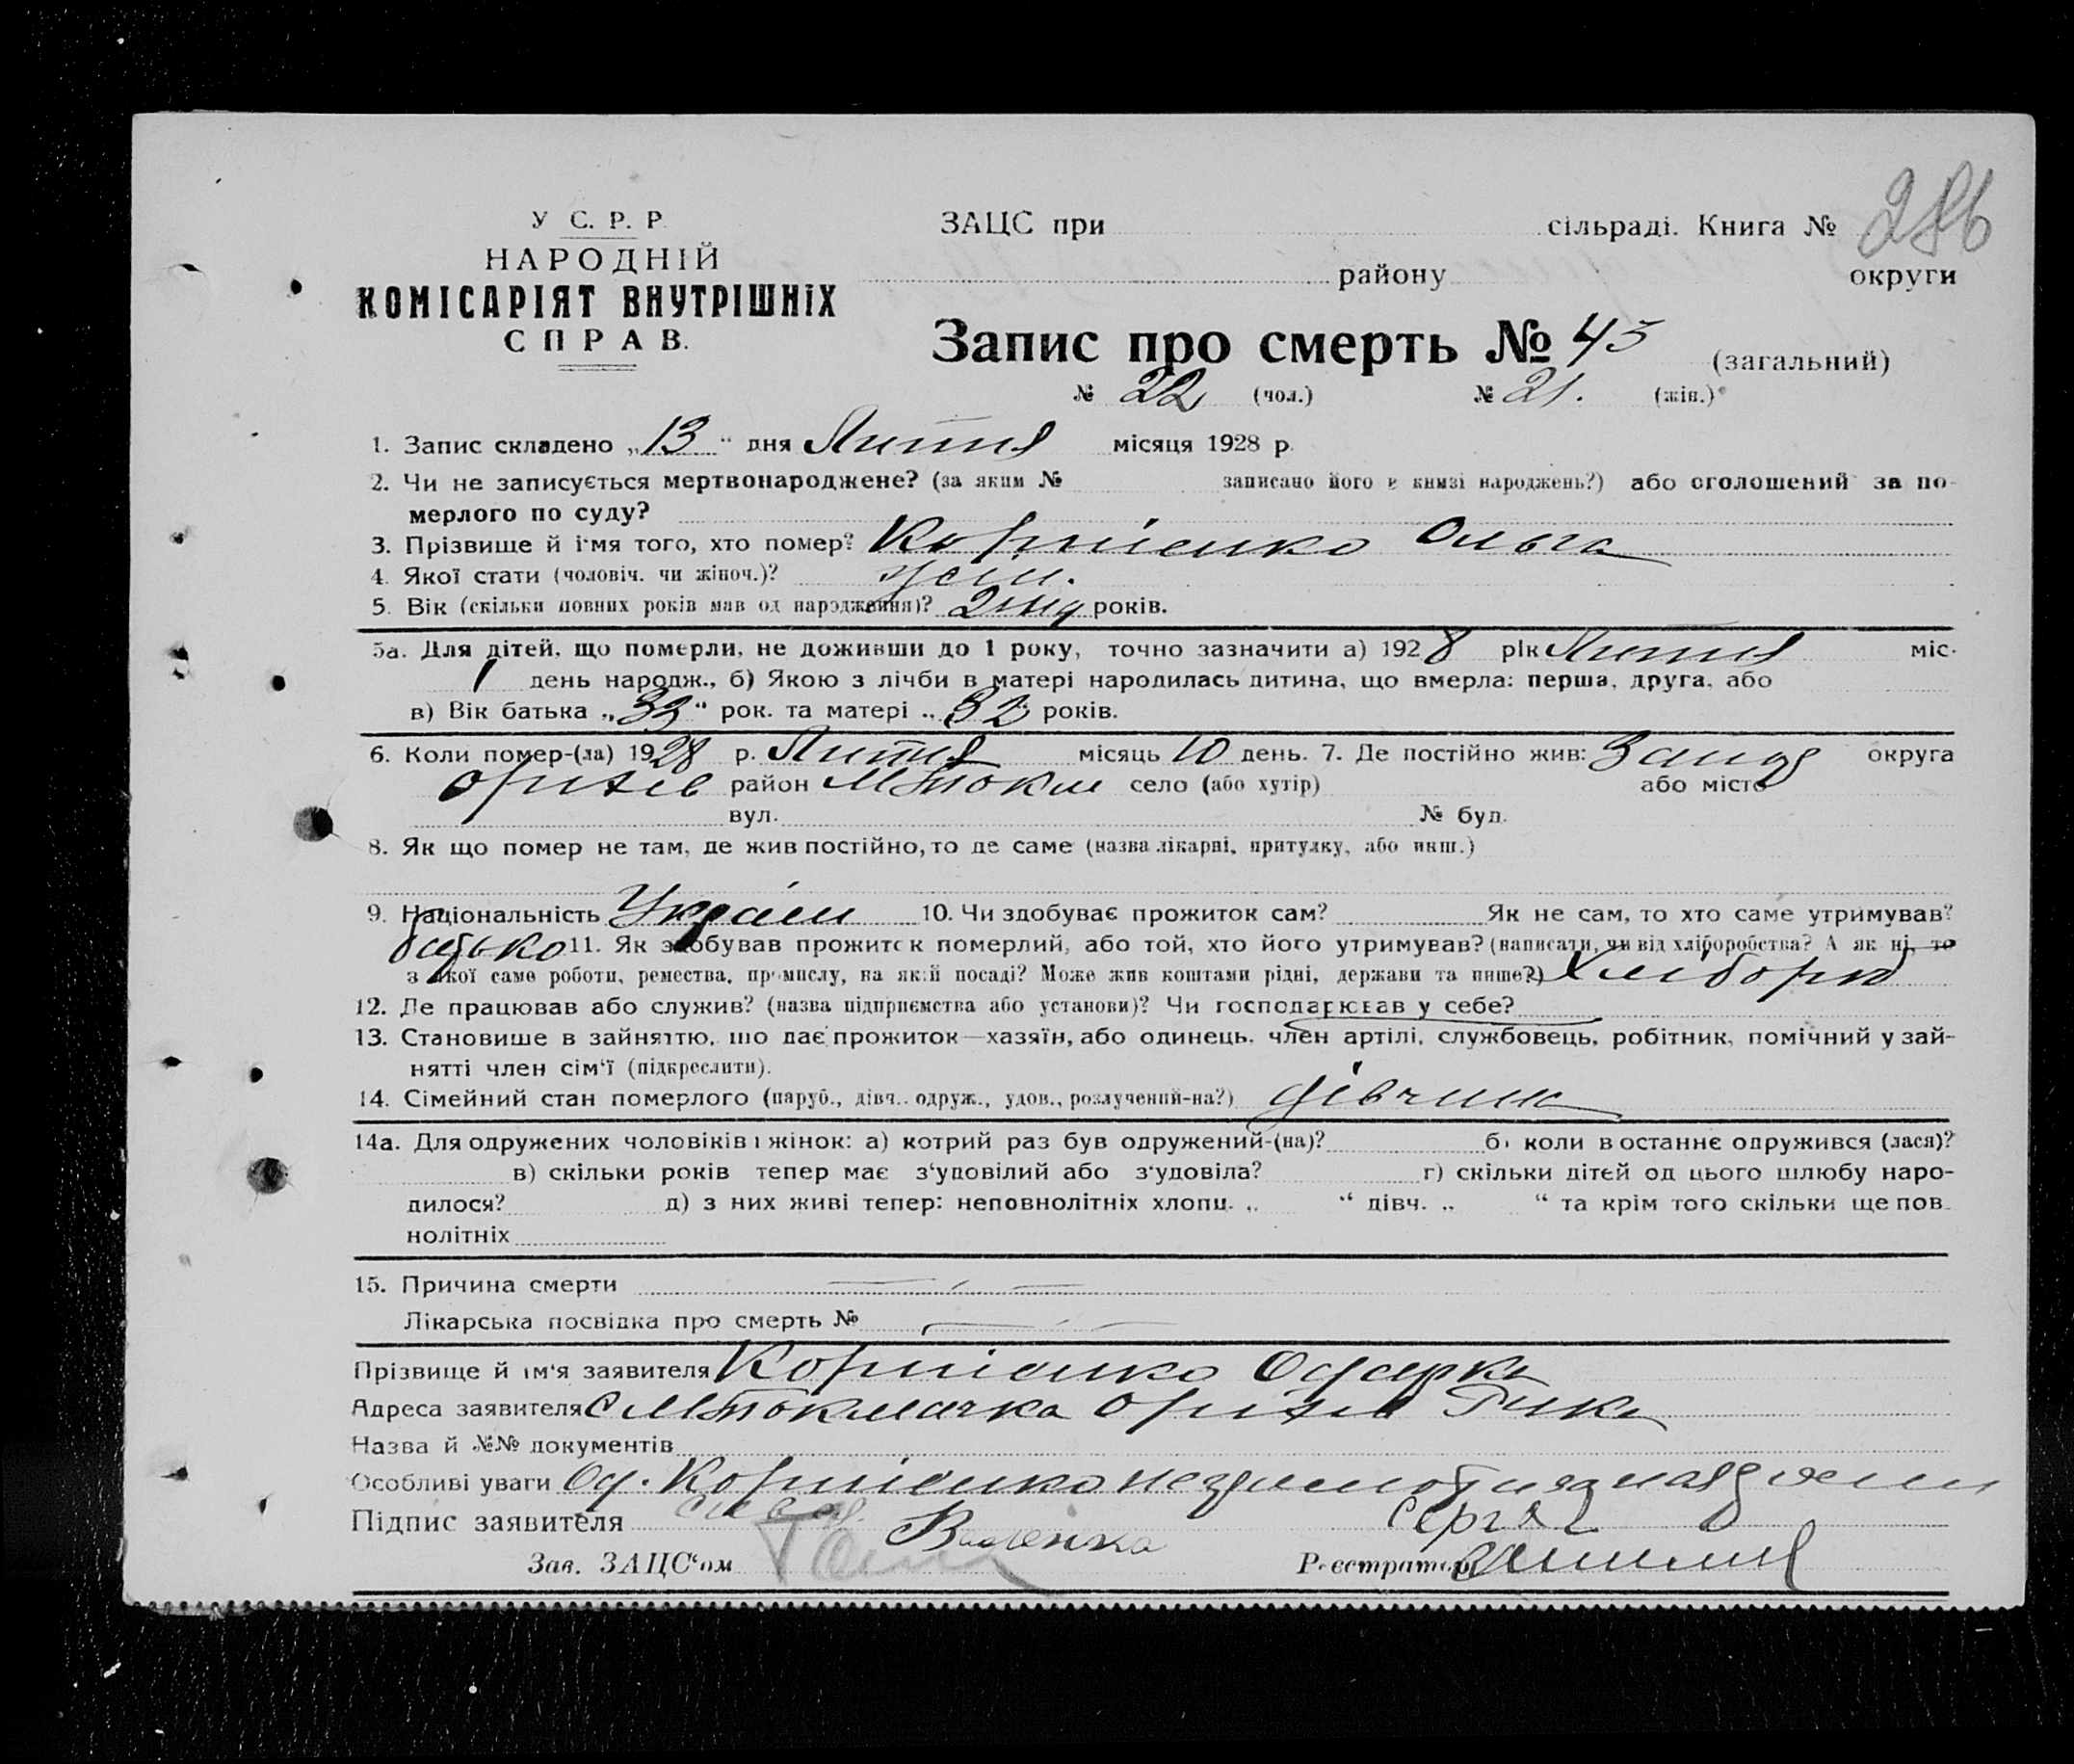 286
У С. Р. Р.
НАРОДНІЙ
КОМІСАРІЯТ ВНУТРІШНІХ
СПРАВ.
ЗАЦС при сільраді. Книга №
району округи
Запис про смерть № 43 (загальний)
№ 22 (чол.) № 21. (жін.)
1. Запис складено „13“ дня Лютня місяця 1928 р.
2. Чи не записується мертвонароджене? (за яким № записано його в книзі народжень?) або оголошений за по-
мерлого по суду?
3. Прізвище й ім'я того, хто помер? Корнієнко Ольга
4. Якої стати (чоловіч. чи жіноч.)? жін.
5. Вік (скільки повних років мав од народження)? років.
5а. Для дітей, що померли, не доживши до 1 року, точно зазначити а) 1928 рік Лютня міс.
1 день народж., б) Якою з лічби в матері народилась дитина, що вмерла: перша, друга, або
в) Вік батька „33“ рок. та матері „32 років.
6. Коли помер-(ла) 1928 р. Лютня місяць 10 день. 7. Де постійно жив: Запор округа
Оріхів район МТокм село (або хутір) або місто
вул. № буд.
8. Як що помер не там, де жив постійно, то де саме (назва лікарні, притулку, або инш.)
9. Національність Україн 10. Чи здобуває прожиток сам? Як не сам, то хто саме утримував?
батько 11. Як здобував прожиток померлий, або той, хто його утримував? (написати, чи від хліборобства? А як ні, то
з якої саме роботи, ремества, промислу, на якій посаді? Може жив коштами рідні, держави та инше?) Хлібороб
12. Де працював або служив? (назва підприємства або установи)? Чи господарював у себе?
13. Становише в зайняттю, що дає прожиток—хазяїн, або одинець, член артілі, службовець, робітник, помічний у зай-
нятті член сім'ї (підкреслити).
14. Сімейний стан померлого (паруб., дівч., одруж., удов., розлучений-на?) дівчина
14а. Для одружених чоловіків і жінок: а) котрий раз був одружений-(на)? б) коли востаннє одружився (лася)?
в) скільки років тепер має з'удовілий або з'удовіла? г) скільки дітей од цього шлюбу наро-
дилося? д) з них живі тепер: неповнолітніх хлопц. „ “ дівч. „ “ та крім того скільки ще пов-
нолітніх
15. Причина смерти
Лікарська посвідка про смерть №
Прізвище й ім'я заявителя Корнієнко Одарка
Адреса заявителя С МТокмачка Оріхів Рика
Назва й №№ документів
Особливі уваги Од. Корнієнко
Підпис заявителя
Зав. ЗАЦС'ом Реєстратор